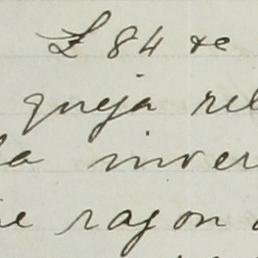 £ 84 &c
queja rel
la inver
ragon